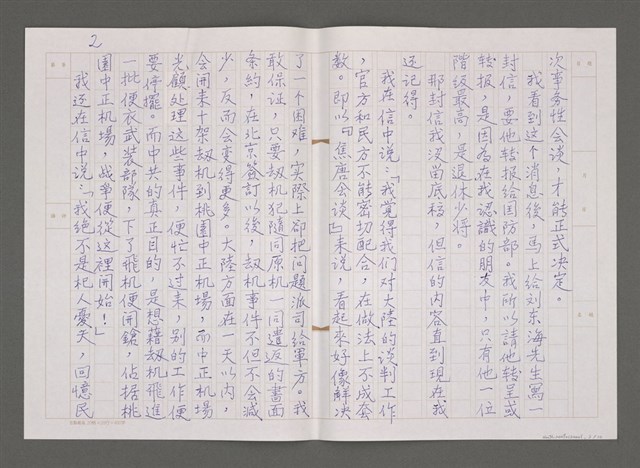 次事务性会谈，才能正式决定。
我看到这个消息後，馬上给刘东海先生写一
封信，要他转报给国防部。我所以請他转呈或
转报，是因為在我認識的朋友中，只有他一位
階级最高，是退休少将。
那封信我没留底稿，但信的内容直到現在我
还记得。
我在信中说：「我覺得我们对大陸的谈判工作
，官方和民方不能密切配合，在做法上不成套
数。即以『焦唐会谈』来说，看起来好像解决
了一个困难，实際上卻把问题派司给軍方。我
敢保证，只要劫机犯隨同原机一同遣返的書面
条約，在北京簽訂以後，劫机事件不但不会减
少，反而会变得更多。大陸方面在一天以内，
会開来十架劫机到桃園中正机場，而中正机場
光顧处理这些事件，便忙不过来，别的工作便
要停擺。而中共的真正目的，是想藉劫机飛進
一批便衣武装部隊，下了飛机便開鎗，佔据桃
園中正机場，战争便從这裡開始！」
我还在信中说：「我绝不是杞人憂天，回憶民
2